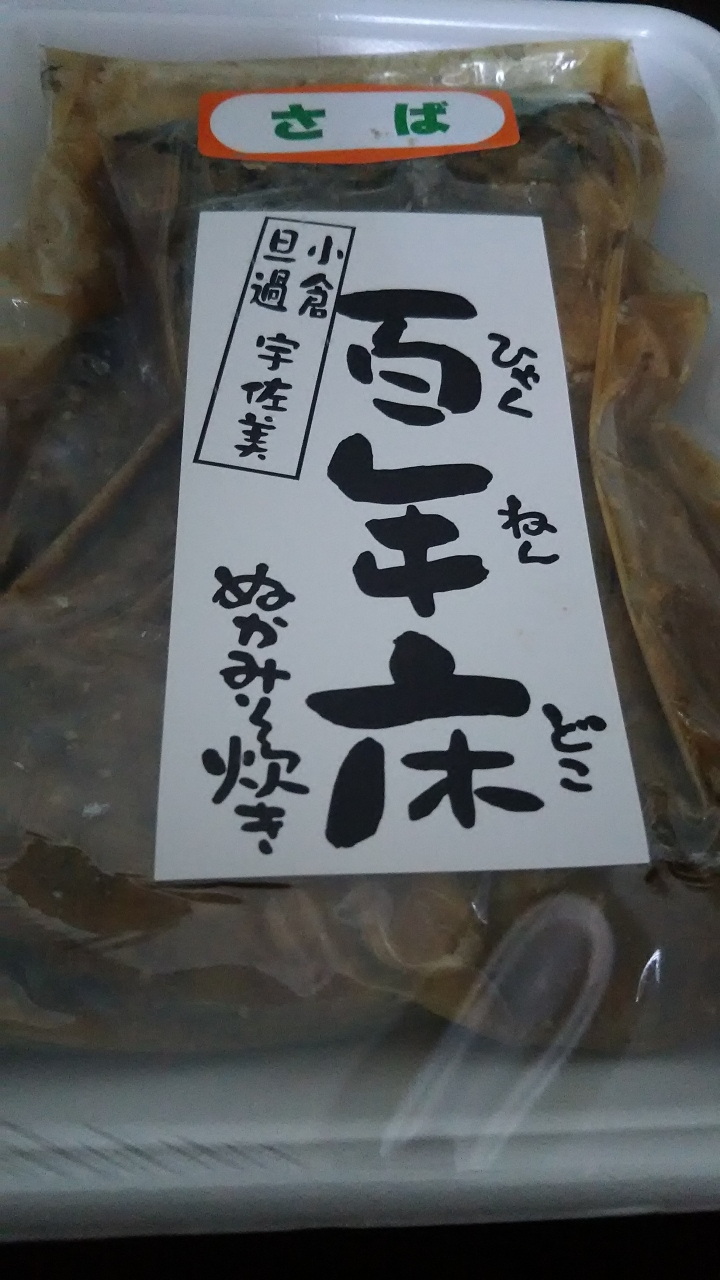 さば
百年床
ひゃくねんどこ
小倉
旦過 宇佐美
ぬかみそ炊き